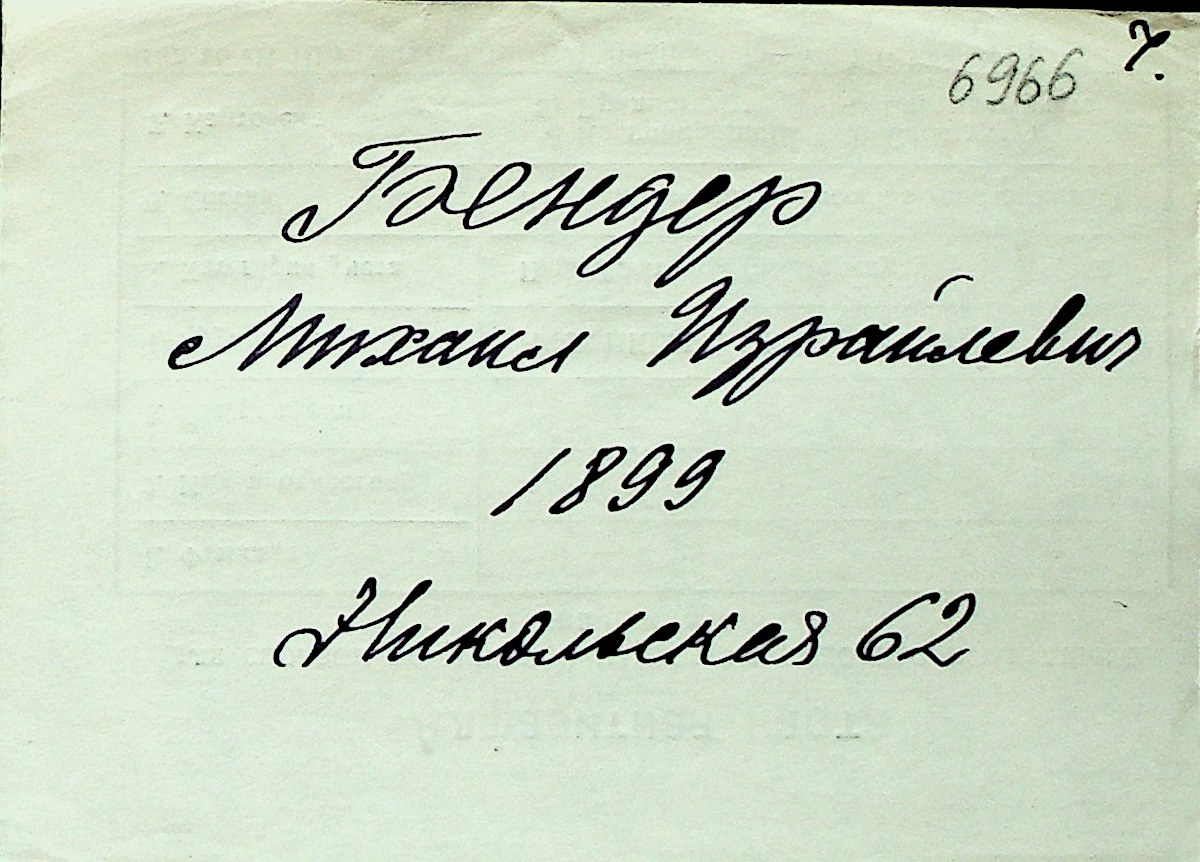 6966 7.
Бендер
Михаил Израйлевич
1899
Никольская 62